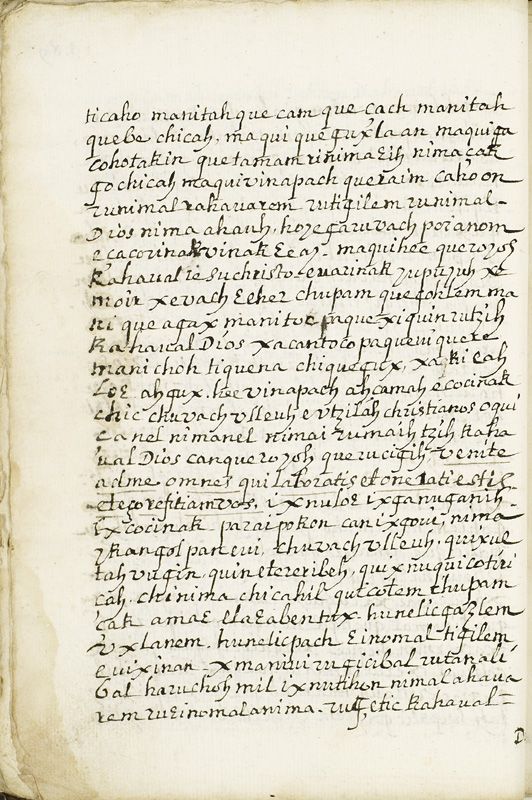 ticaho manitah que cam que cach manitah
quebe chicah, ma qui que guxla an maquiga
cohotakin que tamam rinimaɛih nima cak
go chicah maquivinapach queraim caho on
runimal rahavarem rutigilem runimal-
Dios nima ahauh, hoze garuvach poranom
e cacorinak vinak ɛeaz. maquihee que royos
Kahaval Jesuchristo evarinak yupuyuh xe
moir xevach ɛeher chupam quegohlem ma
ni que agax manitoc paque xiquin rutzih
Kahaval Dios xacantoco paquevi quere
mani choh tiquena chiquegux, xa ki eah
Loɛ ahgux. hee vinapach ahcamah e cocinak
chic chuvach vlleuh e vtzilah christianos oqui
ca nel nimanel nimai rumaih tzih Kaha
val Dios canque royoh que rucigih venite
adme omnes qui laboratis et onerati estis
et ego reficiam vos, ixnuloɛ ixganuganih
ix cocinak paraipokon can ixgovi, nima
ykangol pan evi, chuvach vlleuh, quixue
tah vugin, quinetereribeh, quixnuquicotiri
cah, chi nima chicahil quicotem chupam
cak amaɛ elaɛabentux. hunelic gazlem
vxlanem. hunelic pach ɛinomal tigilem
e vixinan xmanivi rugicibal rutanali
bal haruchoh mil ixnutihon nimalahava
rem ruɛinomal anima. rugetic Kahaval=
D